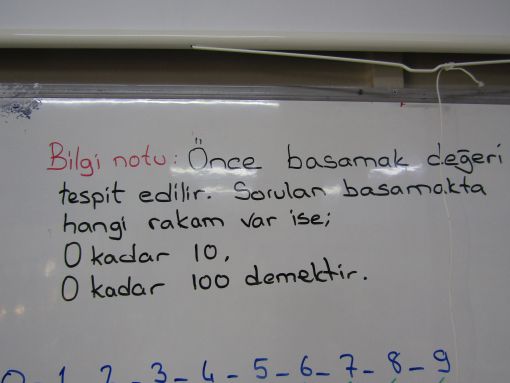 Bilgi notu: Önce basamak değeri
tespit edilir. Sorulan basamakta
hangi rakam var ise;
O kadar 10,
O kadar 100 demektir.
0 - 1 - 2 - 3 - 4 - 5 - 6 - 7 - 8 - 9